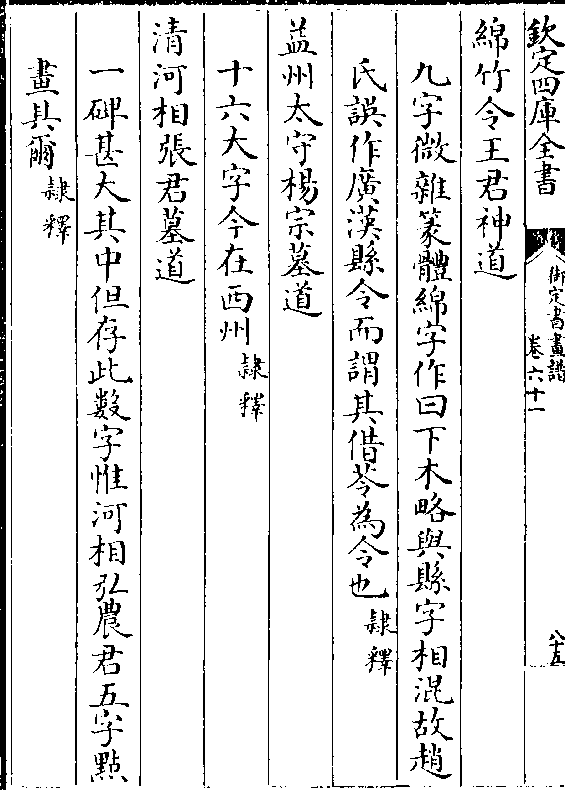 欽定四庫全書
御定書畫譜
卷六十一
八十五
綿竹令王君神道
九字微雜篆體綿字作曰下木略與縣字相混故趙
氏誤作廣漢縣令而謂其借苓為令也隸釋
益州太守楊宗墓道
十六大字今在西州隸釋
清河相張君墓道
一碑甚大其中但存此數字惟河相弘農君五字點
畫具爾隸釋